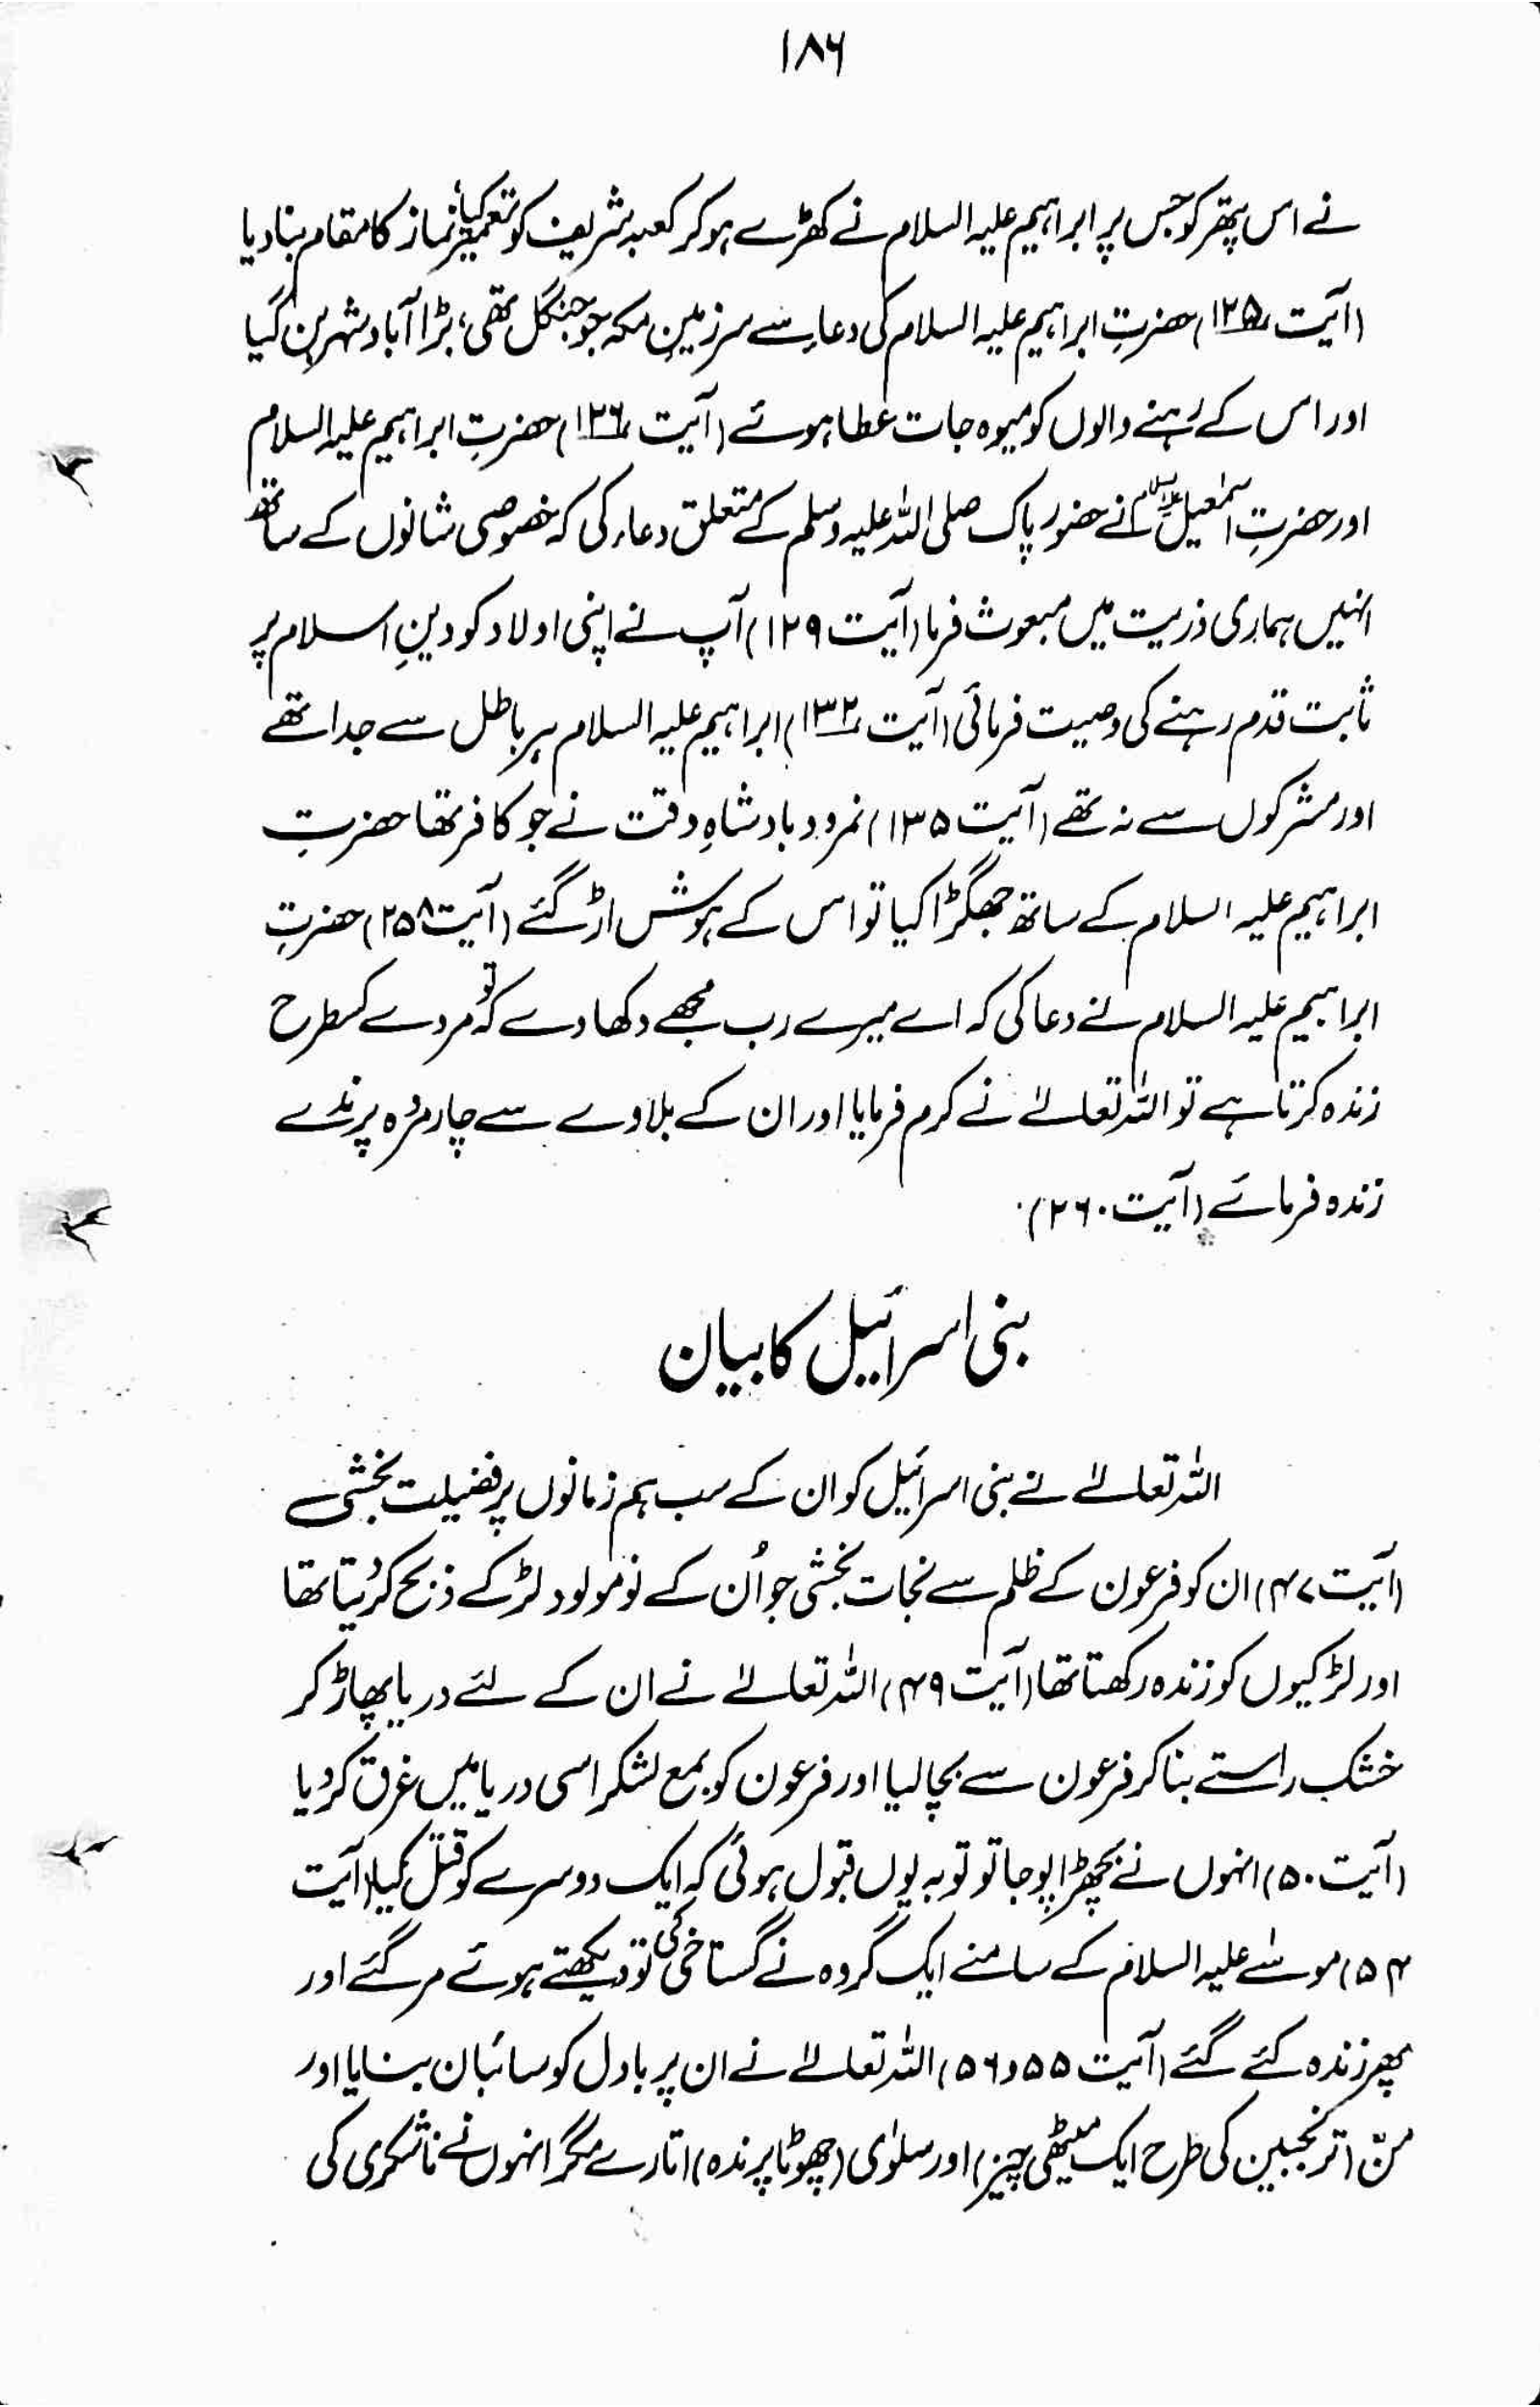 ۱۸۶
نے اس پتھر کو جس پر ابراہیم علیہ السلام نے کھڑے ہو کر کعبہ شریف کو تعمیر کیا، نماز کا مقام بنا دیا
(آیت ۱۲۵) حضرتِ ابراہیم علیہ السلام کی دعاء سے سرزمینِ مکہ جو جنگل تھی، بڑا آباد شہر بن گیا
اور اس کے رہنے والوں کو میوہ جات عطا ہوئے (آیت ۱۲۶) حضرتِ ابراہیم علیہ السلام
اور حضرتِ اسمٰعیل علیہ السلام نے حضور پاک صلی اللہ علیہ وسلم کے متعلق دعاء کی کہ خصوصی شانوں کے ساتھ
انہیں ہماری ذریت میں مبعوث فرما (آیت ۱۲۹) آپ نے اپنی اولاد کو دینِ اسلام پر
ثابت قدم رہنے کی وصیت فرمائی (آیت ۱۳۲) ابراہیم علیہ السلام ہر باطل سے جدا تھے
اور مشرکوں سے نہ تھے (آیت ۱۳۵) نمرود بادشاہِ وقت نے جو کافر تھا حضرتِ
ابراہیم علیہ السلام کے ساتھ جھگڑا کیا تو اس کے ہوش اڑ گئے (آیت ۲۵۸) حضرتِ
ابراہیم علیہ السلام نے دعا کی کہ اے میرے رب مجھے دکھا دے کہ تو مردے کسطرح
زندہ کرتا ہے تو اللہ تعالےٰ نے کرم فرمایا اور ان کے بلاوے سے چار مردہ پرندے
زندہ فرمائے (آیت ۲۶۰)
بنی اسرائیل کا بیان
اللہ تعالےٰ نے بنی اسرائیل کو ان کے سب ہم زمانوں پر فضیلت بخشی
(آیت ۴۷) ان کو فرعون کے ظلم سے نجات بخشی جو اُن کے نومولود لڑکے ذبح کر دیتا تھا
اور لڑکیوں کو زندہ رکھتا تھا (آیت ۴۹) اللہ تعالےٰ نے ان کے لئے دریا پھاڑ کر
خشک راستے بنا کر فرعون سے بچا لیا اور فرعون کو بمع لشکر اسی دریا میں غرق کر دیا
(آیت ۵۰) انہوں نے بچھڑا پوجا تو توبہ یوں قبول ہوئی کہ ایک دوسرے کو قتل کیا (آیت
۵۴) موسےٰ علیہ السلام کے سامنے ایک گروہ نے گستاخی کی تو دیکھتے ہوئے مر گئے اور
پھر زندہ کئے گئے (آیت ۵۵ و ۵۶) اللہ تعالےٰ نے ان پر بادل کو سائبان بنایا اور
منّ (ترنجبین کی طرح ایک میٹھی چیز) اور سلوٰی (چھوٹا پرندہ) اتارے مگر انہوں نے ناشکری کی